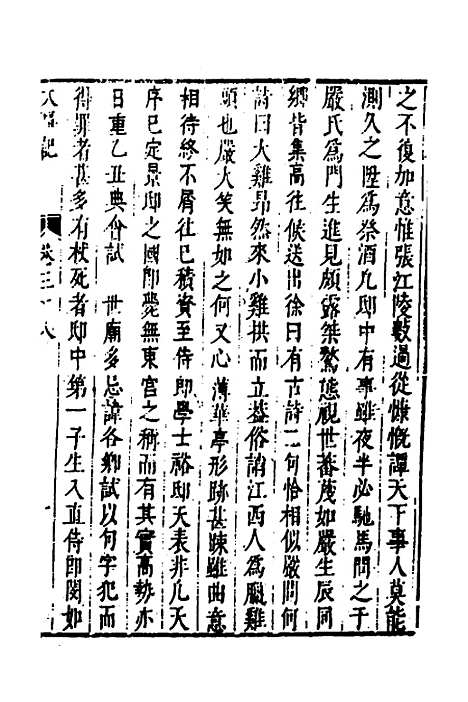 之不復加意惟張江陵數過從慷慨譚天下事人莫能
測久之陞為祭酒凡邸中有事雖夜半必馳馬問之于
嚴氏為門生進見頗露桀驁態視世蕃蔑如嚴生辰同
鄉皆集高往候送出徐曰有古詩二句恰相似嚴問何
詩曰大雞昂然來小雞拱而立葢俗誚江西人為臘雞
頭也嚴大笑無如之何又心薄華亭形跡甚踈雖曲意
相待終不屑往已積資至侍郎學士裕邸天表非凡天
序已定景邸之國即斃無東宫之稱而有其實高勢亦
日重乙丑典會試 世廟多忌諱各鄉試以句字犯而
得罪者甚多有杖死者邸中第一子生入直侍郎閔如
卷三十八